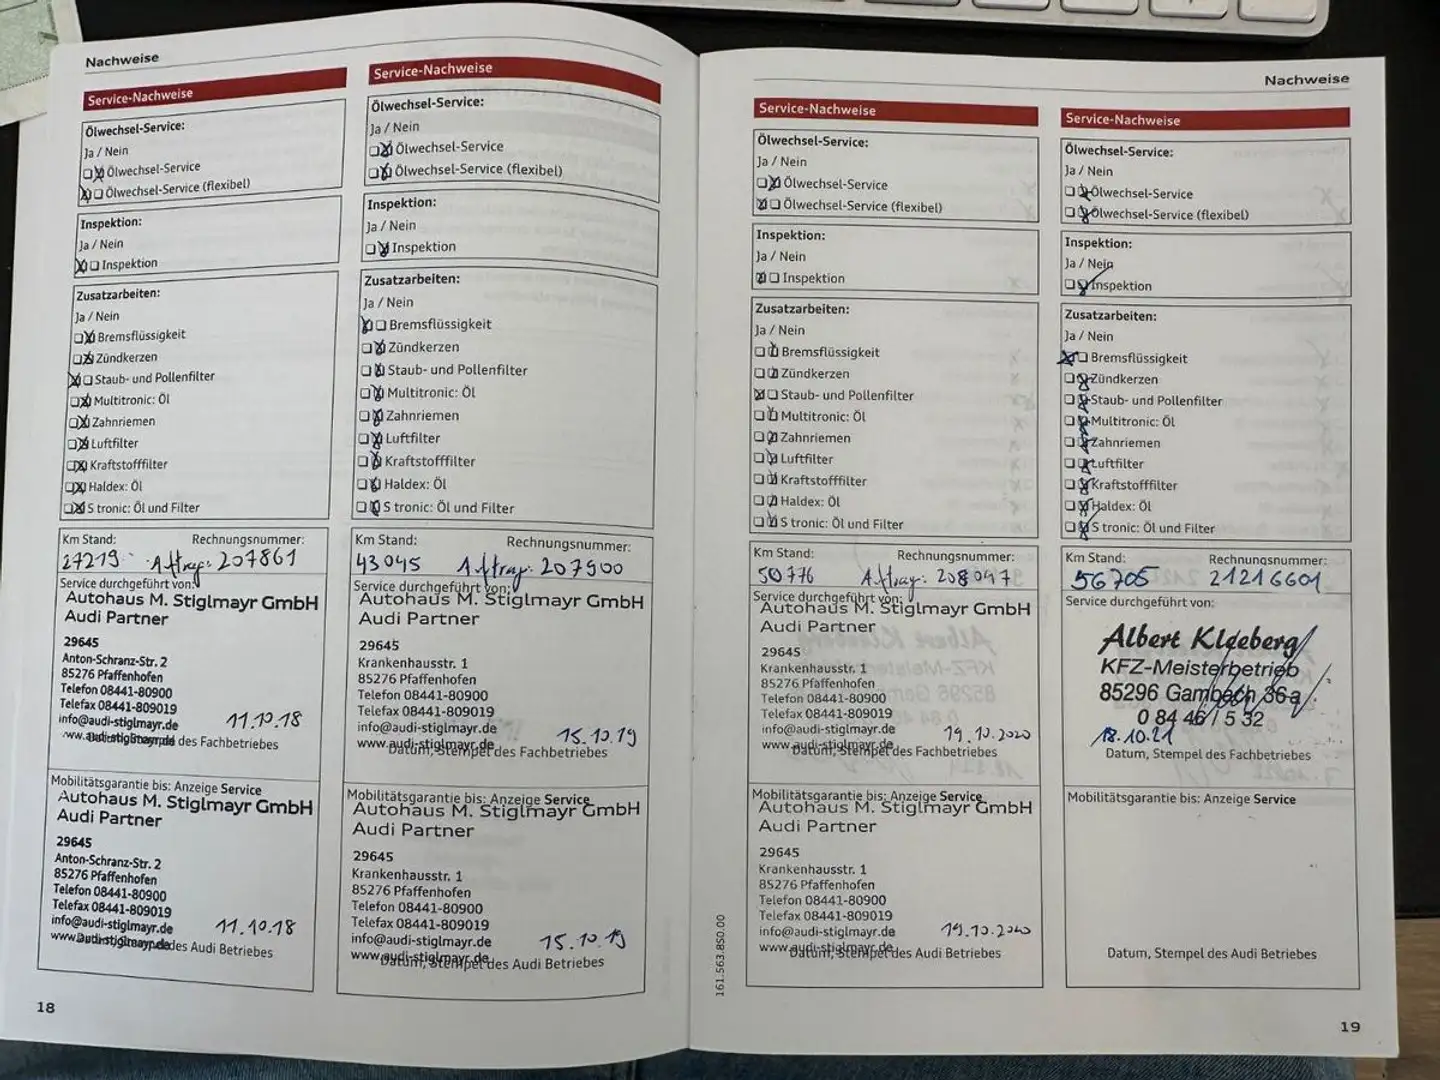 Nachweise
Service-Nachweise
Ölwechsel-Service:
Ja / Nein
Ölwechsel-Service
Ölwechsel-Service (flexibel)
Inspektion:
Ja / Nein
Inspektion
Zusatzarbeiten:
Ja / Nein
Bremsflüssigkeit
Zündkerzen
Staub- und Pollenfilter
Multitronic: Öl
Zahnriemen
Luftfilter
Kraftstofffilter
Haldex: Öl
S tronic: Öl und Filter
Km Stand: Rechnungsnummer:
27219 Auftrag: 207861
Service durchgeführt von:
Autohaus M. Stiglmayr GmbH
Audi Partner
29645
Anton-Schranz-Str. 2
85276 Pfaffenhofen
Telefon 08441-80900
Telefax 08441-809019
info@audi-stiglmayr.de 11.10.18
www.audi-stiglmayr.de
Datum, Stempel des Fachbetriebes
Mobilitätsgarantie bis: Anzeige Service
Autohaus M. Stiglmayr GmbH
Audi Partner
29645
Anton-Schranz-Str. 2
85276 Pfaffenhofen
Telefon 08441-80900
Telefax 08441-809019
info@audi-stiglmayr.de 11.10.18
www.audi-stiglmayr.de
Datum, Stempel des Audi Betriebes
18
Service-Nachweise
Ölwechsel-Service:
Ja / Nein
Ölwechsel-Service
Ölwechsel-Service (flexibel)
Inspektion:
Ja / Nein
Inspektion
Zusatzarbeiten:
Ja / Nein
Bremsflüssigkeit
Zündkerzen
Staub- und Pollenfilter
Multitronic: Öl
Zahnriemen
Luftfilter
Kraftstofffilter
Haldex: Öl
S tronic: Öl und Filter
Km Stand: Rechnungsnummer:
43045 Auftrag: 207900
Service durchgeführt von:
Autohaus M. Stiglmayr GmbH
Audi Partner
29645
Krankenhausstr. 1
85276 Pfaffenhofen
Telefon 08441-80900
Telefax 08441-809019
info@audi-stiglmayr.de 15.10.19
www.audi-stiglmayr.de
Datum, Stempel des Fachbetriebes
Mobilitätsgarantie bis: Anzeige Service
Autohaus M. Stiglmayr GmbH
Audi Partner
29645
Krankenhausstr. 1
85276 Pfaffenhofen
Telefon 08441-80900
Telefax 08441-809019
info@audi-stiglmayr.de 15.10.19
www.audi-stiglmayr.de
Datum, Stempel des Audi Betriebes
Nachweise
Service-Nachweise
Ölwechsel-Service:
Ja / Nein
Ölwechsel-Service
Ölwechsel-Service (flexibel)
Inspektion:
Ja / Nein
Inspektion
Zusatzarbeiten:
Ja / Nein
Bremsflüssigkeit
Zündkerzen
Staub- und Pollenfilter
Multitronic: Öl
Zahnriemen
Luftfilter
Kraftstofffilter
Haldex: Öl
S tronic: Öl und Filter
Km Stand: Rechnungsnummer:
50776 Auftrag: 208047
Service durchgeführt von:
Autohaus M. Stiglmayr GmbH
Audi Partner
29645
Krankenhausstr. 1
85276 Pfaffenhofen
Telefon 08441-80900
Telefax 08441-809019
info@audi-stiglmayr.de 19.10.2020
www.audi-stiglmayr.de
Datum, Stempel des Fachbetriebes
Mobilitätsgarantie bis: Anzeige Service
Autohaus M. Stiglmayr GmbH
Audi Partner
29645
Krankenhausstr. 1
85276 Pfaffenhofen
Telefon 08441-80900
Telefax 08441-809019
info@audi-stiglmayr.de 19.10.2020
www.audi-stiglmayr.de
Datum, Stempel des Audi Betriebes
161.563.850.00
Service-Nachweise
Ölwechsel-Service:
Ja / Nein
Ölwechsel-Service
Ölwechsel-Service (flexibel)
Inspektion:
Ja / Nein
Inspektion
Zusatzarbeiten:
Ja / Nein
Bremsflüssigkeit
Zündkerzen
Staub- und Pollenfilter
Multitronic: Öl
Zahnriemen
Luftfilter
Kraftstofffilter
Haldex: Öl
S tronic: Öl und Filter
Km Stand: Rechnungsnummer:
56705 21216601
Service durchgeführt von:
Albert Kleeberg
KFZ-Meisterbetrieb
85296 Gambach 36a
0 84 46 / 5 32
18.10.21
Datum, Stempel des Fachbetriebes
Mobilitätsgarantie bis: Anzeige Service
Datum, Stempel des Audi Betriebes
19